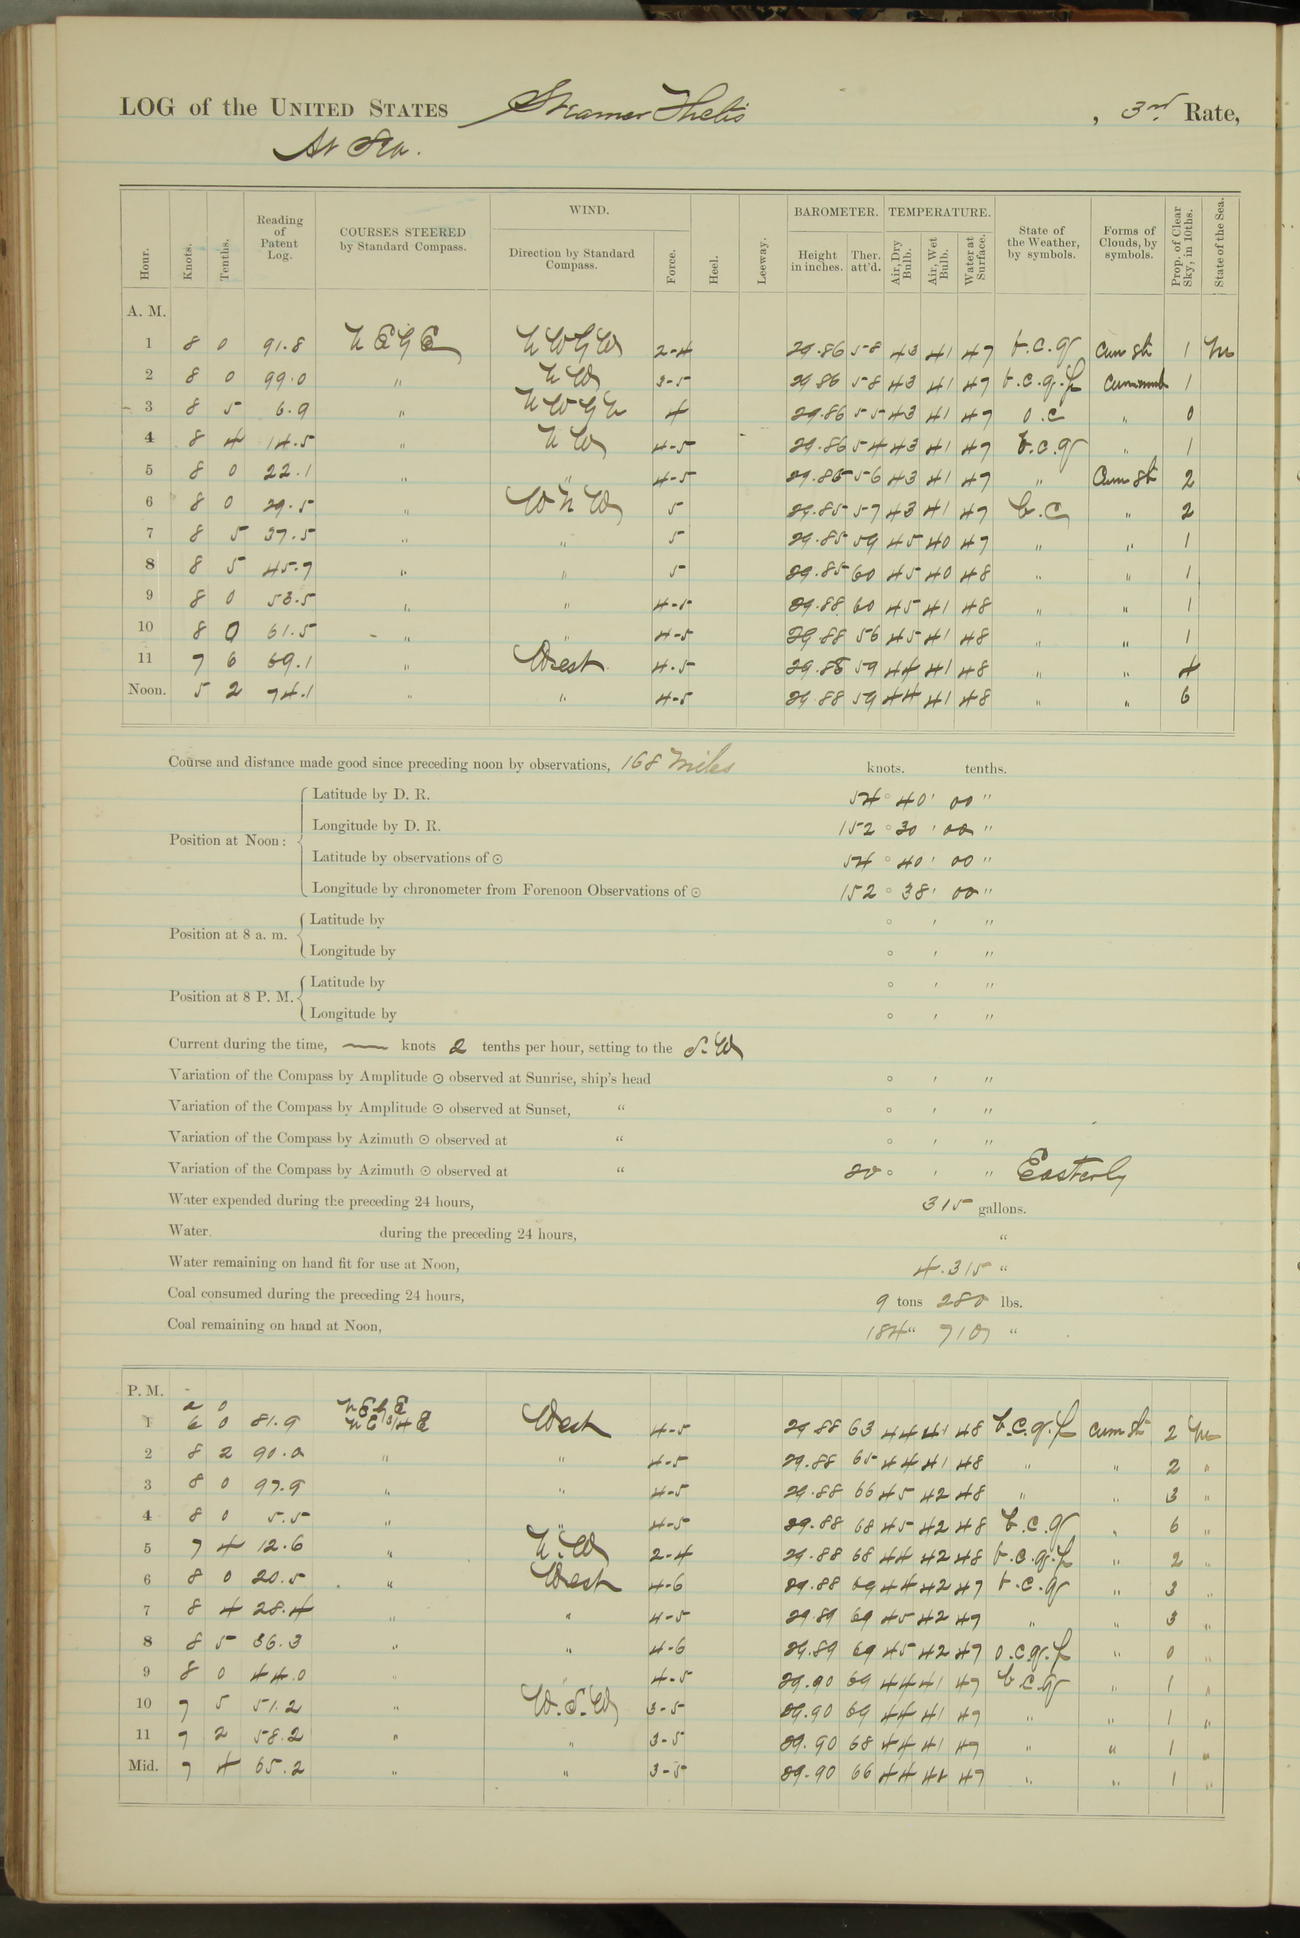 LOG of the UNITED STATES Steamer Thetis, 3rd Rate,
At Sea.
Hour. Knots. Tenths. Reading of Patent Log. COURSES STEERED by Standard Compass. WIND. Direction by Standard Compass. Force. Heel. Leeway. BAROMETER. Height in inches. Ther. att'd. TEMPERATURE. Air, Dry Bulb. Air, Wet Bulb. Water at Surface. State of the Weather, by symbols. Forms of Clouds, by symbols. Prop. of Clear Sky, in 10ths. State of the Sea.
A. M.
1 8 0 91.8 NE by E NW by W 2-4 29.86 58 43 41 47 b.c.q Cum St 1 M
2 8 0 99.0 " NW 3-5 29.86 58 43 41 47 b.c.q.p Cum nimb 1
3 8 5 6.9 " NW by N 4 29.86 55 43 41 47 o.c " 0
4 8 4 14.5 " NW 4-5 29.86 54 43 41 47 b.c.q " 1
5 8 0 22.1 " " 4-5 29.85 56 43 41 47 " Cum St 2
6 8 0 29.5 " WNW 5 29.85 57 43 41 47 b.c " 2
7 8 5 37.5 " " 5 29.85 59 45 40 47 " " 1
8 8 5 45.7 " " 5 29.85 60 45 40 48 " " 1
9 8 0 53.5 " " 4-5 29.88 60 45 41 48 " " 1
10 8 0 61.5 " " 4-5 29.88 56 45 41 48 " " 1
11 7 6 69.1 " West 4.5 29.88 59 44 41 48 " " 4
Noon. 5 2 74.1 " " 4-5 29.88 59 44 41 48 " " 6
Course and distance made good since preceding noon by observations, 168 miles knots. tenths.
Position at Noon:
Latitude by D. R. 54° 40' 00"
Longitude by D. R. 152° 30' 00"
Latitude by observations of ☉ 54° 40' 00"
Longitude by chronometer from Forenoon Observations of ☉ 152° 38' 00"
Position at 8 a. m.
Latitude by ° ' "
Longitude by ° ' "
Position at 8 P. M.
Latitude by ° ' "
Longitude by ° ' "
Current during the time, — knots 2 tenths per hour, setting to the S.W
Variation of the Compass by Amplitude ☉ observed at Sunrise, ship's head ° ' "
Variation of the Compass by Amplitude ☉ observed at Sunset, " ° ' "
Variation of the Compass by Azimuth ☉ observed at " ° ' "
Variation of the Compass by Azimuth ☉ observed at " 20° ' " Easterly
Water expended during the preceding 24 hours, 315 gallons.
Water during the preceding 24 hours, "
Water remaining on hand fit for use at Noon, 4.315 "
Coal consumed during the preceding 24 hours, 9 tons 280 lbs.
Coal remaining on hand at Noon, 184 " 710 "
P. M.
2 0 NE by E
1 6 0 81.9 NE 3/4 E West 4-5 29.88 63 44 41 48 b.c.q.p Cum St 2 M
2 8 2 90.0 " " 4-5 29.88 65 44 41 48 " " 2 "
3 8 0 97.9 " " 4-5 29.88 66 45 42 48 " " 3 "
4 8 0 5.5 " " 4-5 29.88 68 45 42 48 b.c.q " 6 "
5 7 4 12.6 " N.W 2-4 29.88 68 44 42 48 b.c.q.p " 2 "
6 8 0 20.5 " West 4-6 29.88 69 44 42 47 b.c.q " 3 "
7 8 4 28.4 " " 4-5 29.89 69 45 42 47 " " 3 "
8 8 5 36.3 " " 4-6 29.89 69 45 42 47 o.c.q.p " 0 "
9 8 0 44.0 " " 4-5 29.90 69 44 41 47 b.c.q " 1 "
10 7 5 51.2 " W.S.W 3-5 29.90 69 44 41 47 " " 1 "
11 7 2 58.2 " " 3-5 29.90 68 44 41 47 " " 1 "
Mid. 7 4 65.2 " " 3-5 29.90 66 44 41 47 " " 1 "